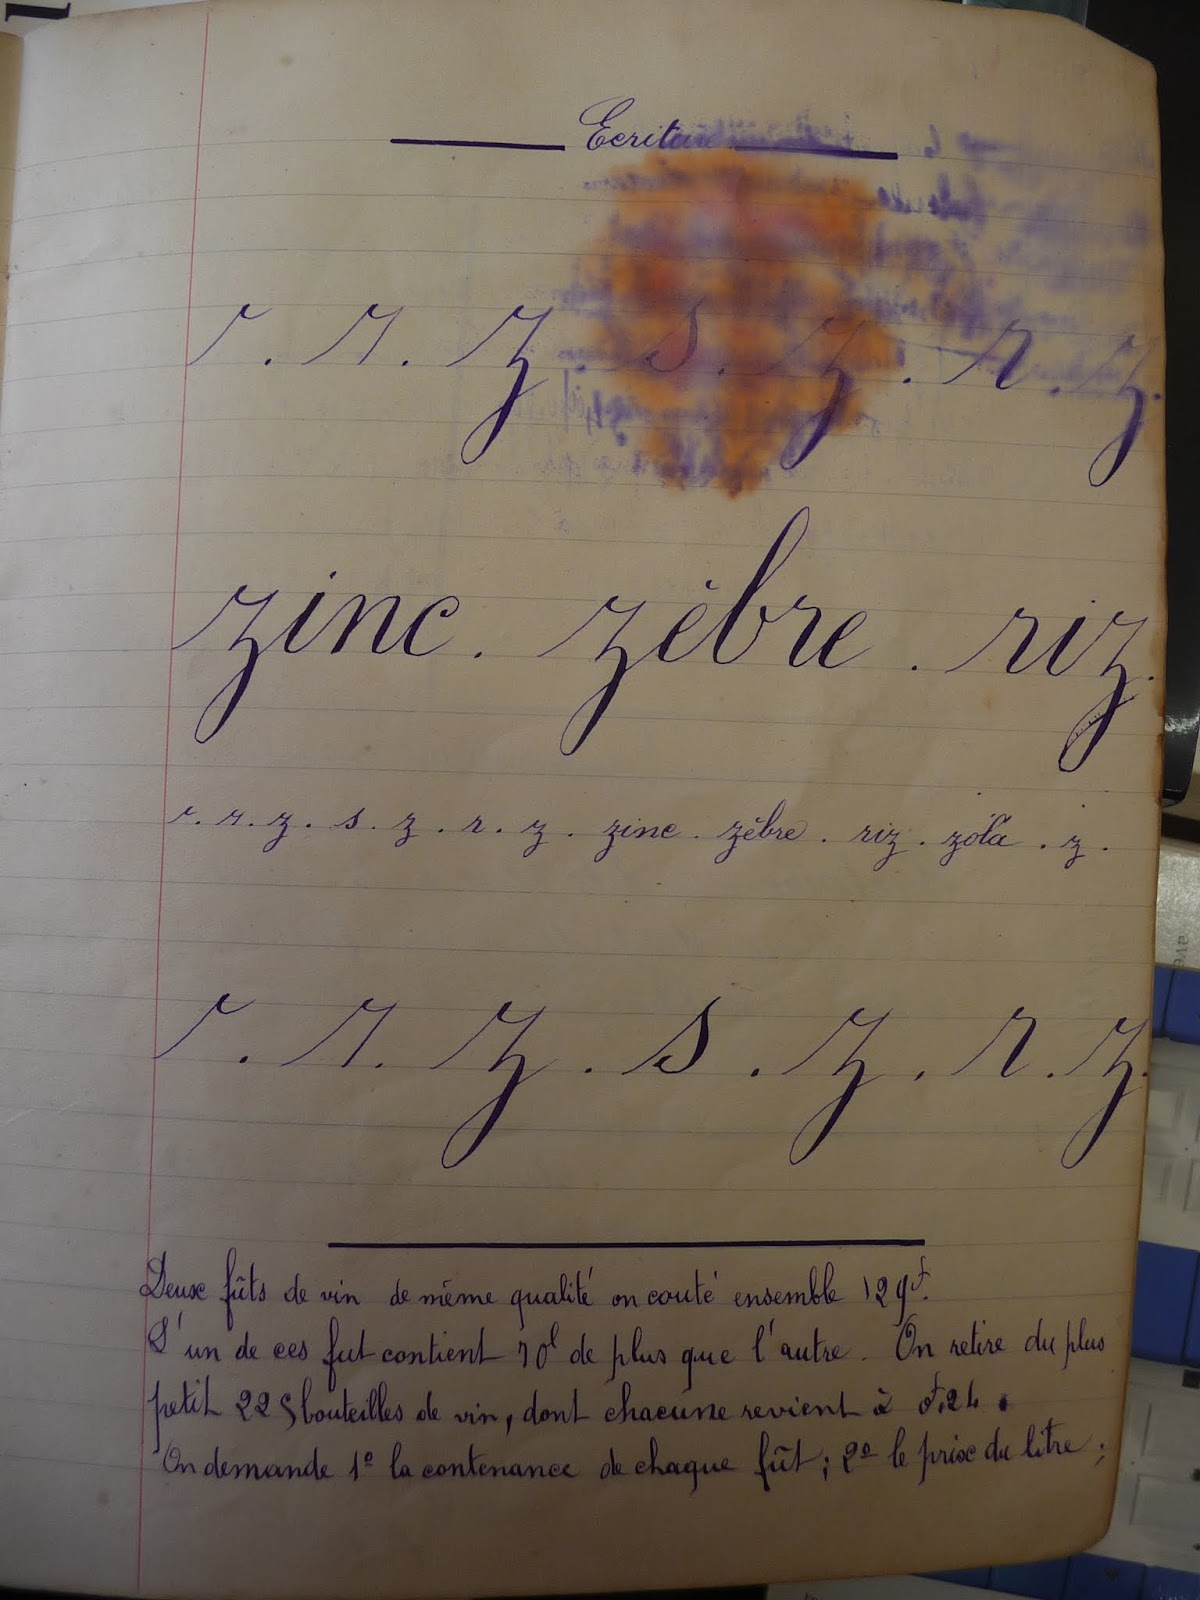 Ecriture
r. r. z. s. z. r. z.
zinc. zèbre. riz.
r. r. z. s. z. r. z. zinc. zèbre. riz. zola. z.
r. r. z. s. z. r. z.
Deux fûts de vin de même qualité on couté ensemble 129f.
L'un de ces fut contient 70l de plus que l'autre. On retire du plus
petit 225 bouteilles de vin, dont chacune revient à 0f,24.
On demande 1º la contenance de chaque fût; 2º le prix du litre;